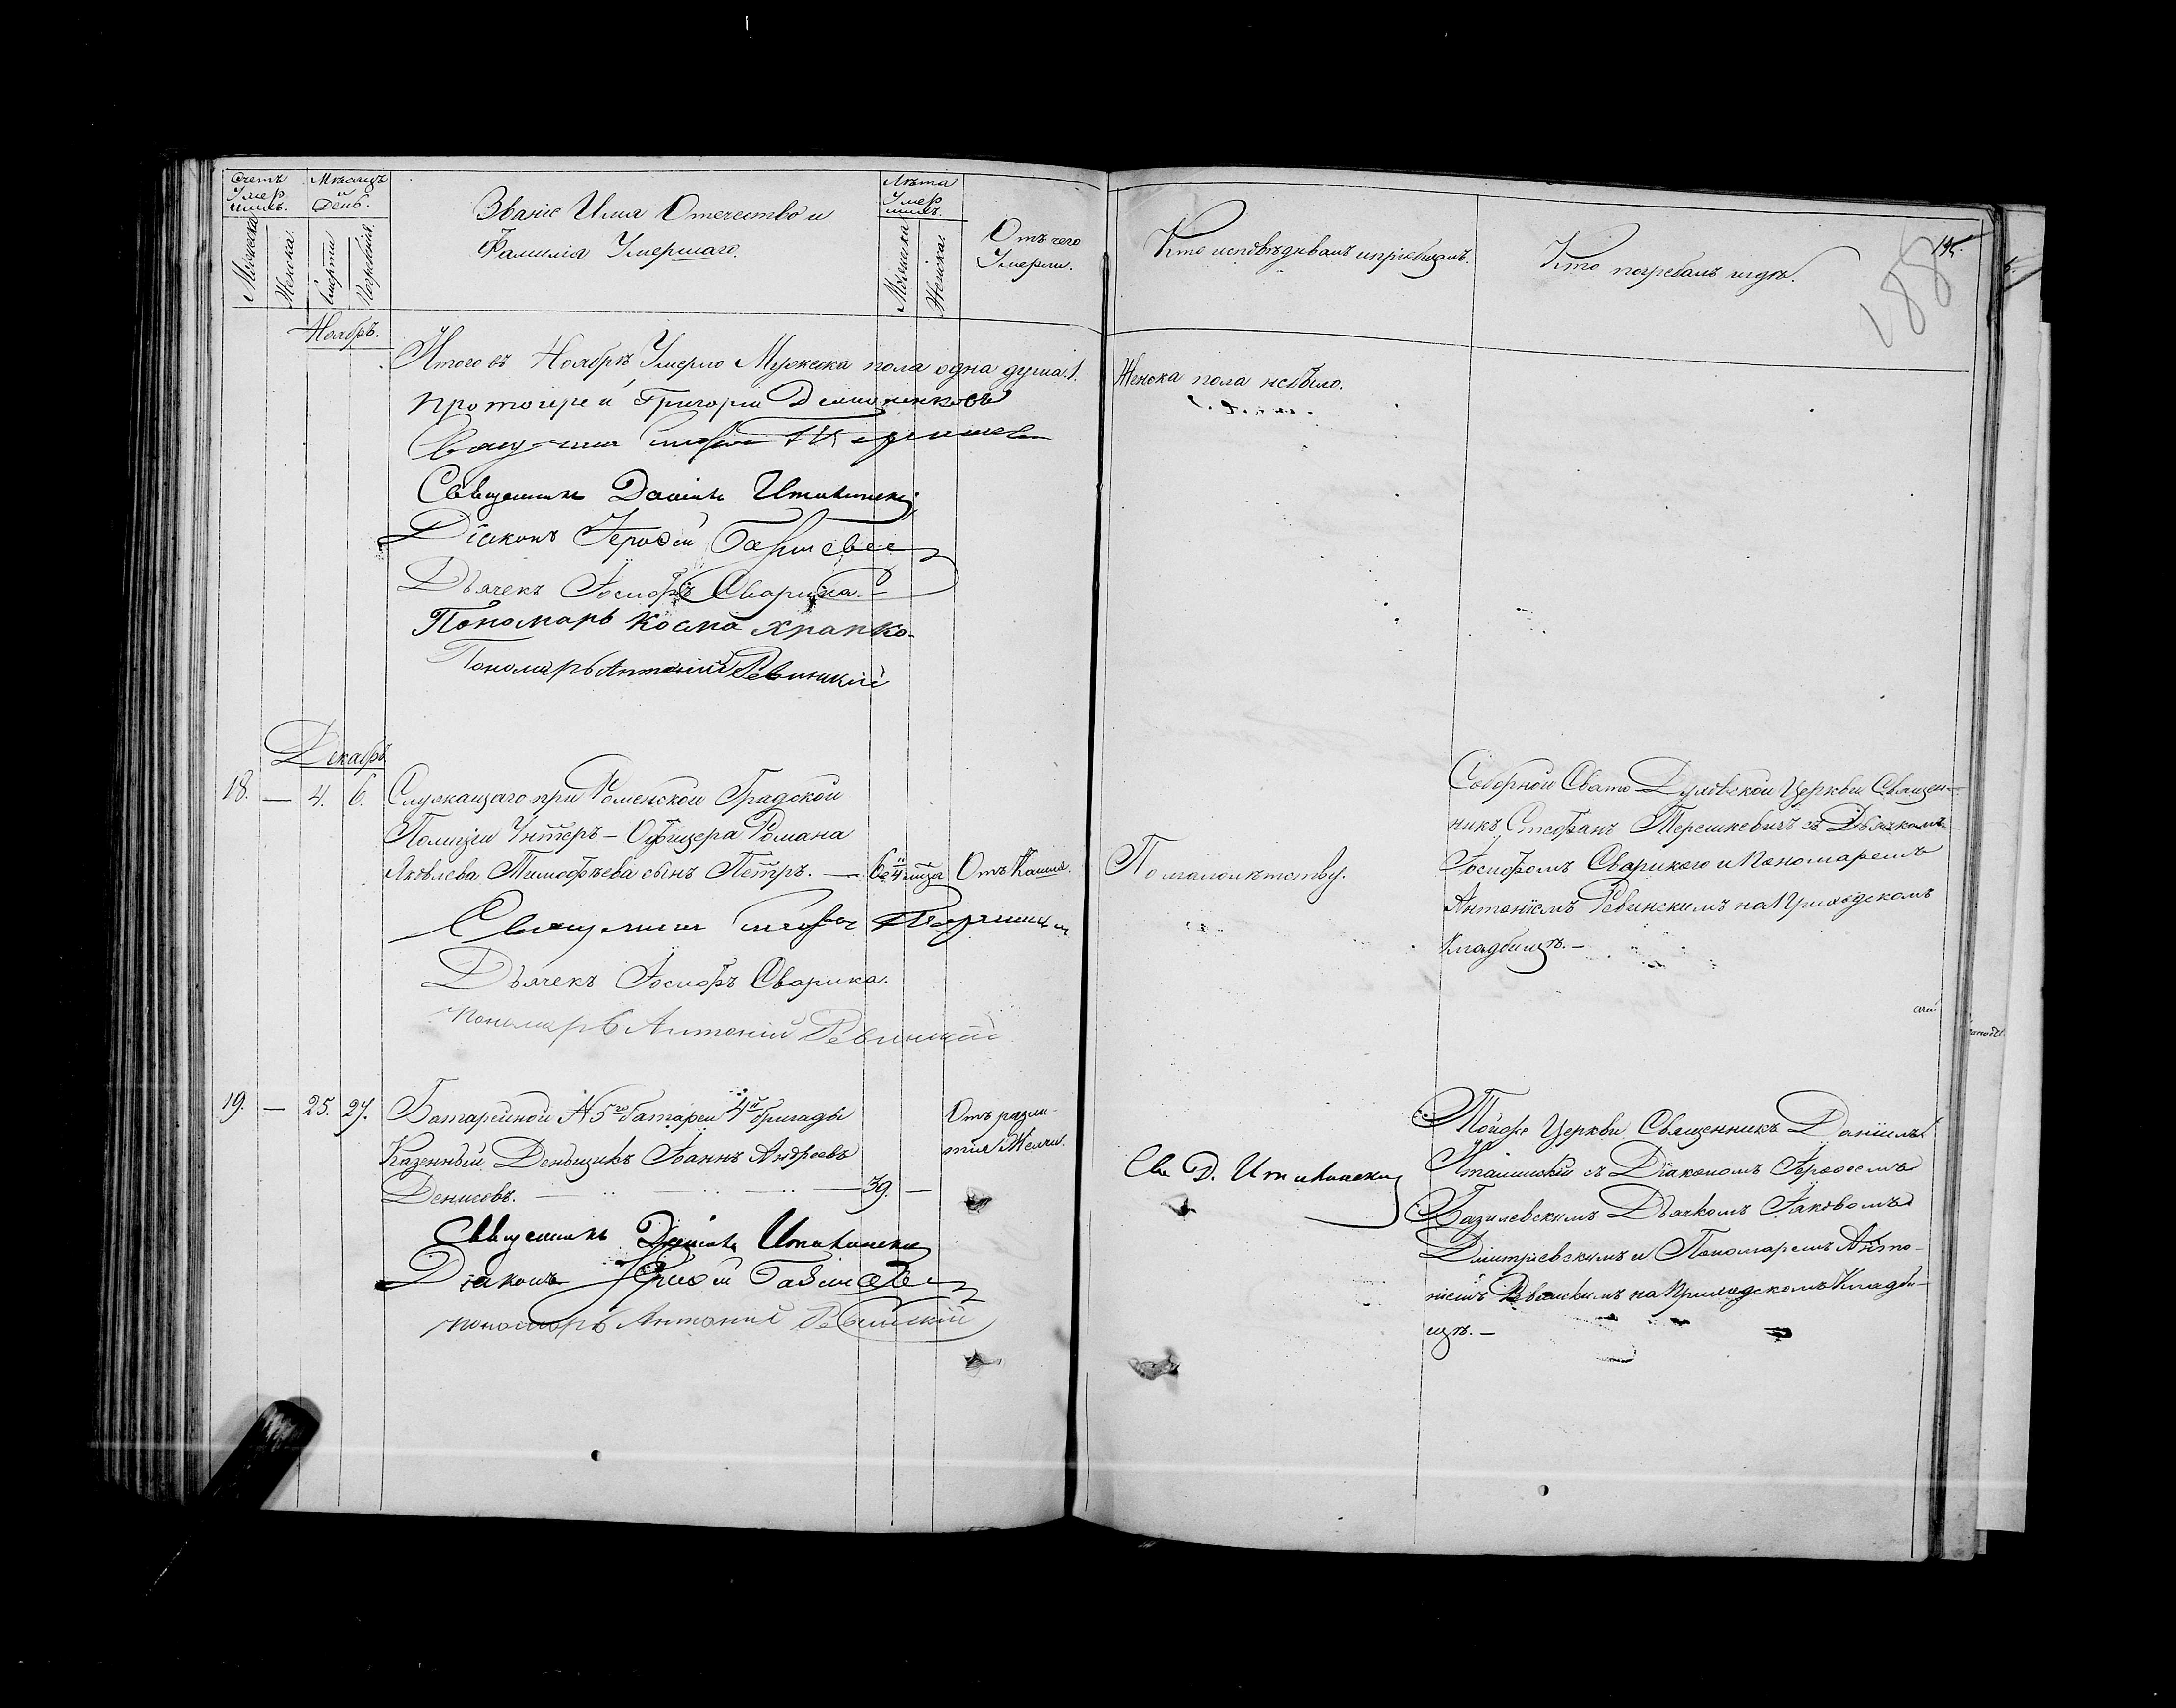 Счетъ Умершихъ.
Мѣсяцъ и День.
Званіе Имя Отечество и
Фамилія Умершаго.
Лѣта Умершихъ.
Отъ чего
Умерли.
Кто исповѣдывалъ и пріобщалъ.
Кто погребалъ и гдѣ.
188
Мужеска
Женска.
Смерти
Погребенія.
Мужеска
Женска.
Ноябрь.
Итого въ Ноябрѣ Умерло Мужеска пола одна душа. 1.
Женска пола небыло.
Протоіерей Григорій
Священникъ
Священникъ Даніилъ
Діаконъ
Дьячекъ Іосифъ Сварика.
Пономарь Косма Храпко
Пономарь Антоній Ревинскій
Декабрь
18. — 4. 6. Служащаго при Роменской Градской
Полиціи Унтеръ-Офицера Романа
Яковлева Тимофѣева сынъ Петръ. — Отъ Кашля.
По малолѣтству.
Соборной Свято Духовской Церкви Священ-
никъ Стефанъ Терешкевичъ съ Дьячкомъ
Іосифомъ Сварикою и Пономаремъ
Антоніемъ Ревинскимъ на Приходскомъ
Кладбищѣ. —
Священникъ
Дьячекъ Іосифъ Сварика.
Пономарь Антоній Ревинскій
19. — 25. 27. Батарейной № 5го батареи 4й бригады
Казенный Деньщикъ Іоаннъ Андреевъ
Денисовъ. — 39. —
Отъ разли-
тія Желчи.
Св. Д.
Тойже Церкви Священникъ Даніилъ
съ Діакономъ
Базилевскимъ Дьячкомъ Іаковомъ
Дмитріевскимъ и Пономаремъ Анто-
ніемъ Ревинскимъ на Приходскомъ Кладби-
щѣ. —
Священникъ Даніилъ
Діаконъ
Пономарь Антоній Ревинскій